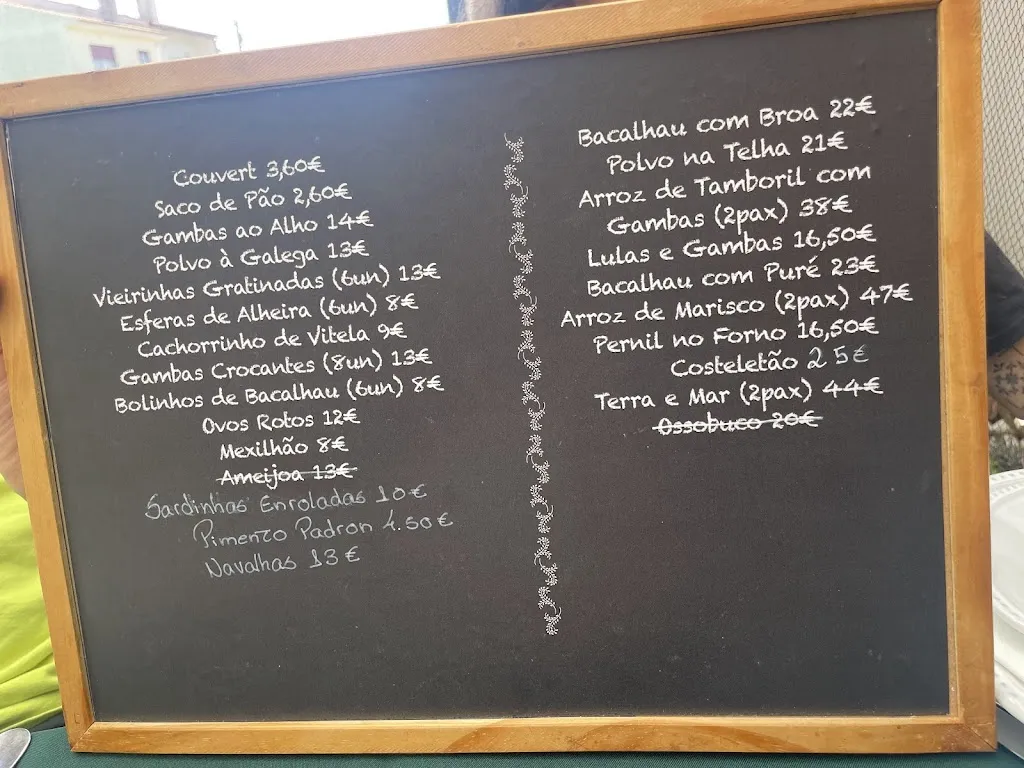 Couvert 3,60€
Saco de Pão 2,60€
Gambas ao Alho 14€
Polvo à Galega 13€
Vieirinhas Gratinadas (6un) 13€
Esferas de Alheira (6un) 8€
Cachorrinho de Vitela 9€
Gambas Crocantes (8un) 13€
Bolinhos de Bacalhau (6un) 8€
Ovos Rotos 12€
Mexilhão 8€
Ameijoa 13€
Sardinhas Enroladas 10€
Pimento Padron 4.50€
Navalhas 13€
Bacalhau com Broa 22€
Polvo na Telha 21€
Arroz de Tamboril com
Gambas (2pax) 38€
Lulas e Gambas 16,50€
Bacalhau com Puré 23€
Arroz de Marisco (2pax) 47€
Pernil no Forno 16,50€
Costeletão 25€
Terra e Mar (2pax) 44€
Ossobuco 20€